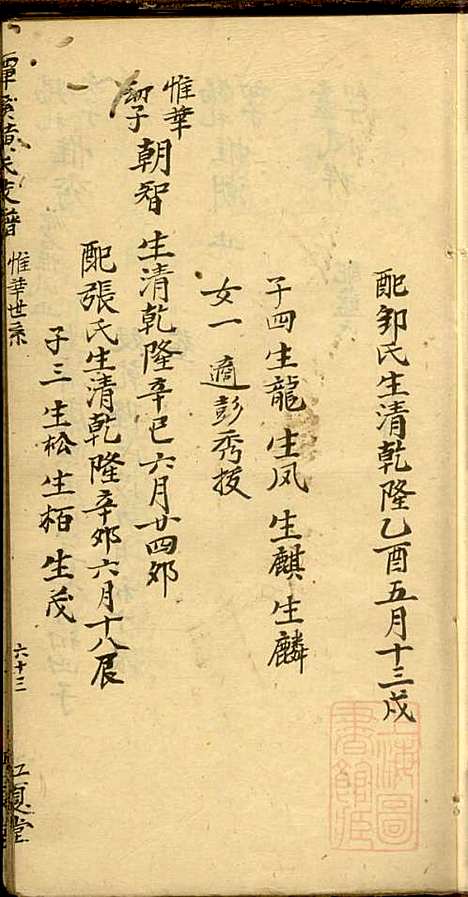 配邹氏生清乾隆乙酉五月十三戌
子四生龍生凤生麒生麟
女一適彭秀拔
惟華
四子朝智生清乾隆辛巳六月廿四卯
配張氏生清乾隆辛卯六月十八辰
子三生松生栢生茂
黄氏支譜
惟華世系
六十三
江夏堂
上海圖書館藏